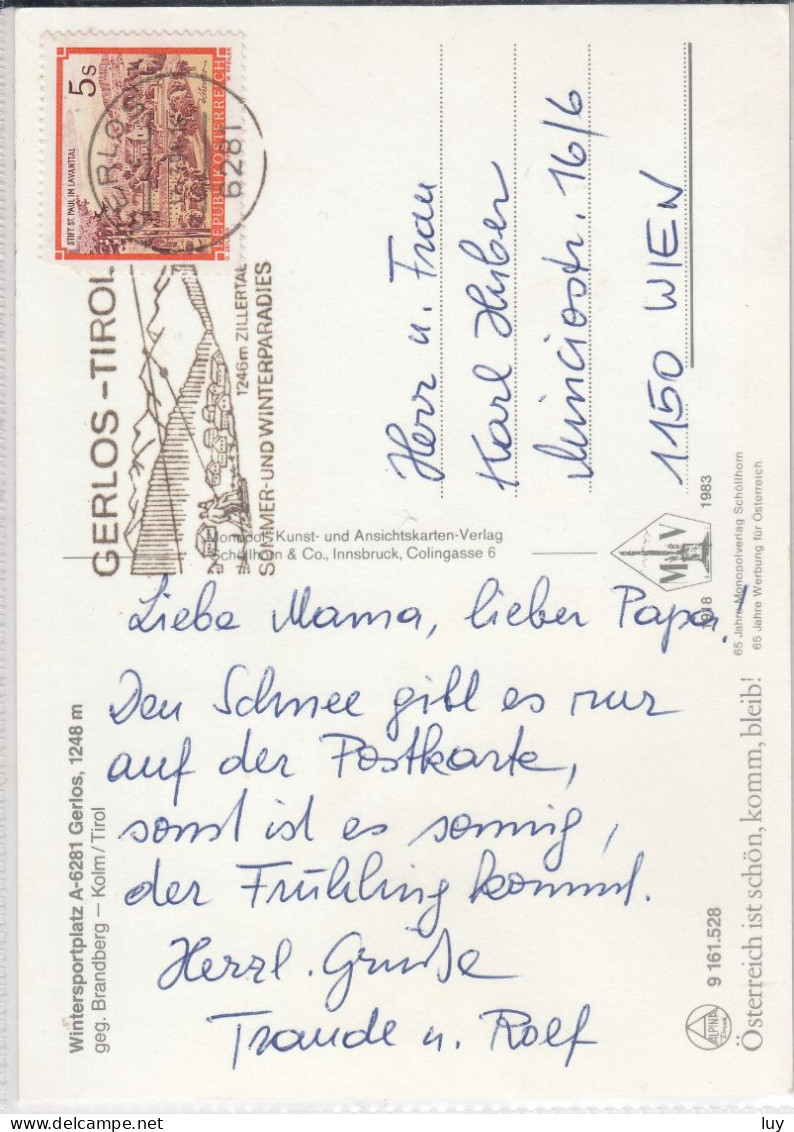 5s
STIFT ST. PAUL IM LAVANTTAL
REPUBLIK ÖSTERREICH
6281
GERLOS - TIROL
1246m ZILLERTAL
SOMMER-UND WINTERPARADIES
Herr u. Frau
Karl Huber
Minciostr. 16/6
1150 WIEN
Monopol, Kunst- und Ansichtskarten-Verlag
Schöllhorn & Co., Innsbruck, Colingasse 6
M V
1918 1983
65 Jahre Monopolverlag Schöllhorn
65 Jahre Werbung für Österreich
Liebe Mama, lieber Papa!
Den Schnee gibt es nur
auf der Postkarte,
sonst ist es sonnig,
der Frühling kommt.
Herzl. Grüße
Traude u. Rolf
Wintersportplatz A-6281 Gerlos, 1248 m
geg. Brandberg — Kolm/Tirol
ALPINA
9 161.528
Österreich ist schön, komm, bleib!
luy